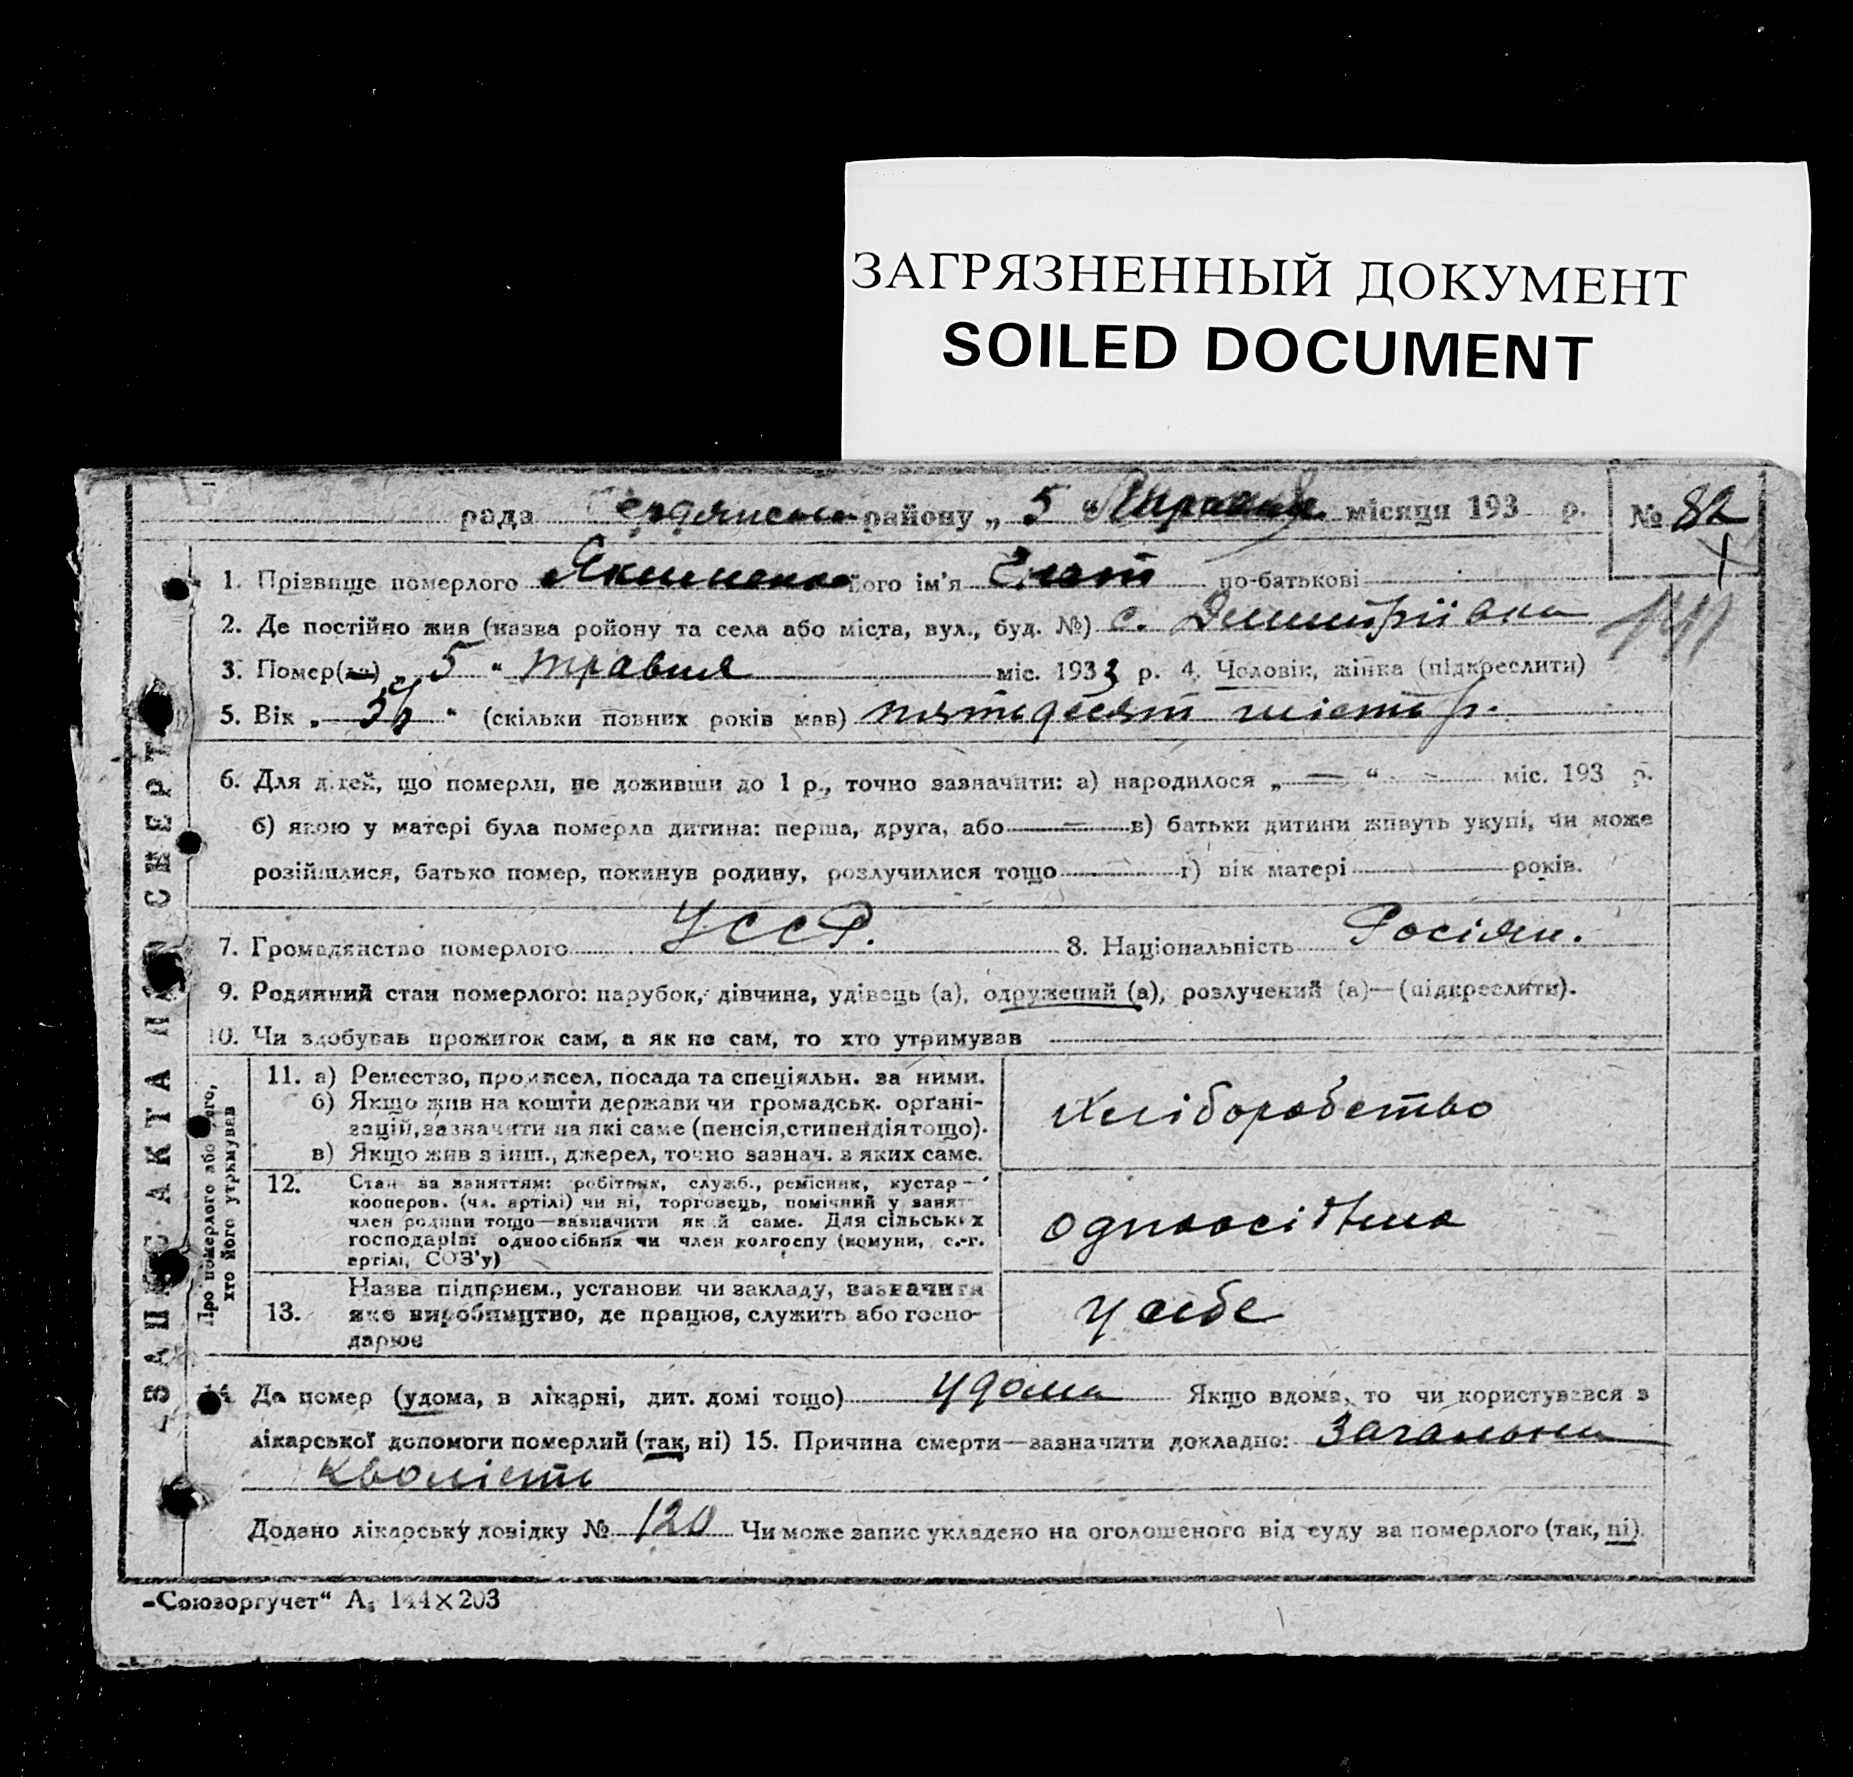 ЗАГРЯЗНЕННЫЙ ДОКУМЕНТ
SOILED DOCUMENT
рада району „ 5 “ місяця 193 р. № 82
1. Прізвище померлого Якименко його ім'я Гнат по-батькові
2. Де постійно жив (назва ройону та села або міста, вул., буд. №) с. Дмитріівка
141
3. Помер(ла) „ 5 “ травня міс. 1933 р. 4. Чоловік, жінка (підкреслити)
5. Вік „ 56 “ (скільки повних років мав) пятьдесят шість р.
6. Для дітей, що померли, не доживши до 1 р., точно зазначити: а) народилося „ — “ міс. 193 р.
б) якою у матері була померла дитина: перша, друга, або — в) батьки дитини живуть укупі, чи може
розійшлися, батько помер, покинув родину, розлучилися тощо г) вік матері років.
7. Громадянство померлого УССР. 8. Національність Росіян.
9. Родинний стан померлого: парубок, дівчина, удівець (а), одружений (а), розлучений (а)—(підкреслити).
10. Чи здобував прожиток сам, а як не сам, то хто утримував
ЗАПИС АКТА ПРО СМЕРТЬ
Про померлого або того, хто його утримував
11. а) Ремество, промисел, посада та спеціяльн. за ними.
б) Якщо жив на кошти держави чи громадськ. орґані-
зацій, зазначити на які саме (пенсія, стипендія тощо).
в) Якщо жив з інш., джерел, точно зазнач. з яких саме.
хліборобство
12. Стан за заняттям: робітник, служб., ремісник, кустар—
кооперов. (чл. артілі) чи ні, торговець, помічний у занят.
член родини тощо—зазначити який саме. Для сільських
господарів: одноосібник чи член колгоспу (комуни, с.-г.
артілі, СОЗ'у)
одноосібна
13. Назва підприєм., установи чи закладу, зазначити
яке виробництво, де працює, служить або госпо-
дарює
у себе
14. Де помер (удома, в лікарні, дит. домі тощо) удома Якщо вдома, то чи користувався з
лікарської допомоги померлий (так, ні) 15. Причина смерти—зазначити докладно: Загальна
кволість
Додано лікарську довідку № 120 Чи може запис укладено на оголошеного від суду за померлого (так, ні).
„Союзоргучет“ А₅ 144×203